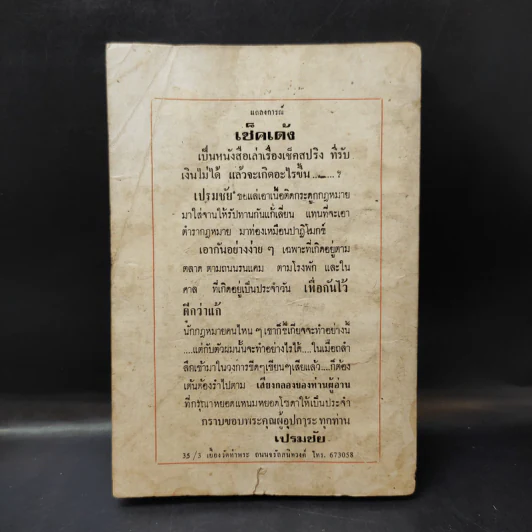 แถลงการณ์
เช็คเด้ง
เป็นหนังสือเล่าเรื่องเช็คสปริง ที่รับ
เงินไม่ได้ แล้วจะเกิดอะไรขึ้น ......... ?
เปรมชัย ขอแล่เอาเนื้อติดกระดูกกฎหมาย
มาใส่จานให้รัปทานกันแก้เลี่ยน แทนที่จะเอา
ตำรากฎหมาย มาท่องเหมือนปาฏิโมกข์
เอากันอย่างง่าย ๆ เฉพาะที่เกิดอยู่ตาม
ตลาด ตามถนนรนแคม ตามโรงพัก และใน
ศาล ที่เกิดอยู่เป็นประจำวัน เพื่อกันไว้
ดีกว่าแก้
นักกฎหมายคนไหน ๆ เขาก็ขี้เกียจจะทำอย่างนี้
....แต่กับตัวผมนั้นจะทำอย่างไรได้....ในเมื่อถลำ
ลึกเข้ามาในวงการขีดๆเขียนๆเสียแล้ว....ก็ต้อง
เต้นต้องรำไปตาม เสียงกลองของท่านผู้อ่าน
ที่กรุณาหยอดแหนมหยอดโซดาให้เป็นประจำ
กราบขอบพระคุณผู้อุปการะทุกท่าน
เปรมชัย
35/3 เยื้องวัดท่าพระ ถนนจรัลสนิทวงศ์ โทร. 673058